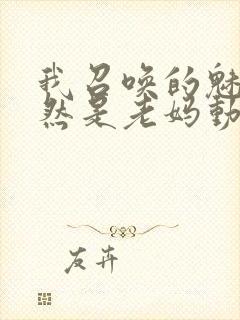 我召唤的魅
然是老妈動
友卉